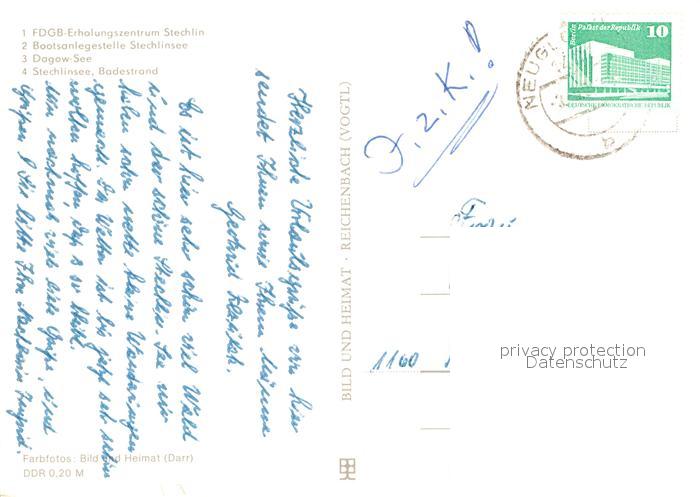 1 FDGB-Erholungszentrum Stechlin
2 Bootsanlegestelle Stechlinsee
3 Dagow-See
4 Stechlinsee, Badestrand
Herzliche Urlaubsgrüße von hier
sendet Ihnen sowie Ihrem Männe
Gertrud
Es ist hier sehr schön viel Wald
und der schöne Stechlin. See wir
haben schon nette kleine Wanderungen
gemacht. Das Wetter ist bis jetzt sehr schön
wollen hoffen, daß es so bleibt.
nun nochmals viele liebe Grüße, und
grüßen Sie bitte Ihre
Farbfotos: Bild und Heimat (Darr)
DDR 0,20 M
BILD UND HEIMAT · REICHENBACH (VOGTL)
Berlin, Palast der Republik
10
DEUTSCHE DEMOKRATISCHE REPUBLIK
NEUGL
1160
privacy protection
Datenschutz